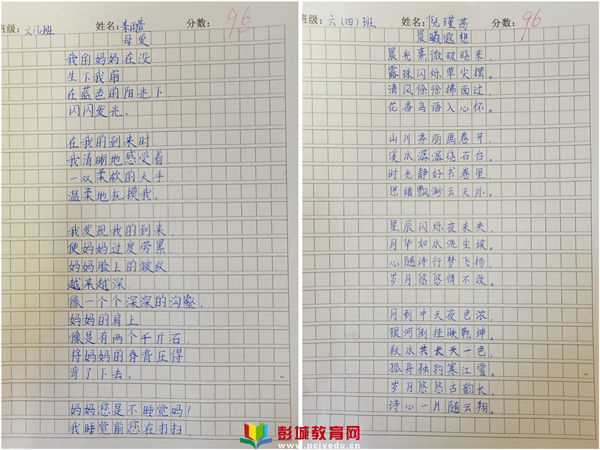 班级:六几班 姓名: 分数: 96
母爱
我的妈妈在没
生下我前
在蓝色的阳光下,
闪闪发光。
在我的到来时
我清晰地感受着
一双柔软的大手
温柔地抚摸我。
我发现我的到来,
使妈妈过度劳累
妈妈脸上的皱纹
越来越深
像一个个深深的沟壑,
妈妈的肩上
像是有两个千斤石,
将妈妈的脊背压得
弯了下去,
妈妈您是不睡觉吗?
我睡觉前您在打扫,
班级:六(四)班 姓名:倪瑾萱 分数: 96
晨曦遐想
晨光熹微破晓来,
露珠闪烁草尖摆。
清风徐徐拂面过,
花香鸟语入心怀。
山川秀丽画卷开,
溪水潺潺绕石台。
时光静好书卷里,
思绪飘渺云天外。
星辰闪烁夜未央,
月华如水洗尘埃。
心随诗行梦飞扬,
岁月悠悠情不改。
月到中天夜色浓,
银河倒挂映乾坤。
秋水共长天一色,
孤舟独钓寒江雪。
岁月悠悠古韵长,
诗心一片随云翔。
彭城教育网
www.pcjyedu.cn